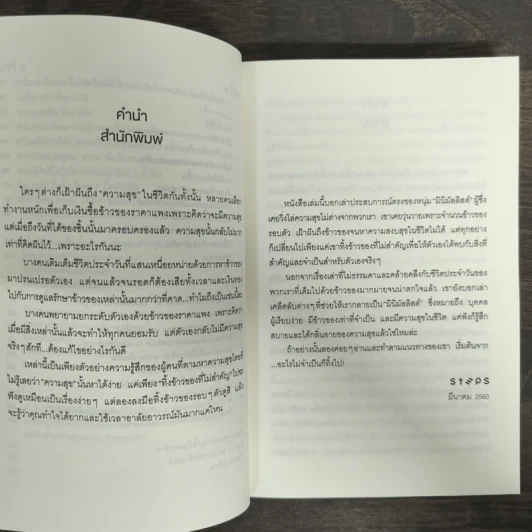 คำนำ
สำนักพิมพ์
ใครๆ ต่างก็เฝ้าฝันถึง “ความสุข” ในชีวิตกันทั้งนั้น หลายคนเลือก
ทำงานหนักเพื่อเก็บเงินซื้อข้าวของราคาแพงเพราะคิดว่าจะมีความสุข
แต่เมื่อถึงวันที่ได้ของชิ้นนั้นมาครอบครองแล้ว ความสุขนั้นกลับไม่มาก
เท่าที่คิดฝันไว้...เพราะอะไรกันนะ
บางคนเติมเต็มชีวิตประจำวันที่แสนเหนื่อยหน่ายด้วยการหาข้าวของ
มาปรนเปรอตัวเอง แต่จนแล้วจนรอดก็ต้องเสียทั้งเวลาและเงินทอง
ไปกับการดูแลรักษาข้าวของเหล่านั้นมากกว่าที่คาด...ทำไมถึงเป็นเช่นนี้นะ
บางคนพยายามยกระดับตัวเองด้วยข้าวของราคาแพง เพราะคิดว่า
เมื่อมีสิ่งเหล่านั้นแล้วจะทำให้ทุกคนยอมรับ แต่ตัวเองกลับไม่มีความสุข
จริงๆ สักที...ต้องแก้ไขอย่างไรกันดี
เหล่านี้เป็นเพียงตัวอย่างความรู้สึกของผู้คนที่ตามหาความสุขโดยที่
ไม่รู้เลยว่า “ความสุข” นั้นหาได้ง่าย แค่เพียง “ทิ้งข้าวของที่ไม่สำคัญ” ไป
ฟังดูเหมือนเป็นเรื่องง่ายๆ แต่ลองลงมือทิ้งข้าวของรอบๆ ตัวดูสิ แล้ว
จะรู้ว่าคุณทำใจได้ยากและใช้เวลาอาลัยอาวรณ์มันมากแค่ไหน
หนังสือเล่มนี้บอกเล่าประสบการณ์ตรงของหนุ่ม “มินิมัลลิสต์” ผู้ซึ่ง
เคยวิ่งไล่ความสุขไม่ต่างจากพวกเรา เขาเคยวุ่นวายเพราะจำนวนข้าวของ
รอบตัว เฝ้าฝันถึงข้าวของจนหาความสงบสุขในชีวิตไม่ได้ แต่ทุกอย่าง
ก็เปลี่ยนไปเพียงแค่เขาทิ้งข้าวของที่ไม่สำคัญเพื่อให้ตัวเองได้พบกับสิ่งที่
สำคัญและจำเป็นสำหรับตัวเองจริงๆ
นอกจากเรื่องเล่าที่ไม่ธรรมดาและคล้ายคลึงกับชีวิตประจำวันของ
พวกเราที่เต็มไปด้วยข้าวของมากมายจนน่าตกใจแล้ว เขายังบอกเล่า
เคล็ดลับต่างๆ ที่ช่วยให้เรากลายเป็น “มินิมัลลิสต์” ซึ่งหมายถึง บุคคล
ผู้เรียบง่าย มีข้าวของเท่าที่จำเป็น และมีความสุขในชีวิต แค่ฟังก็รู้สึก
สบายและได้กลิ่นอายของความสุขแล้วใช่ไหมล่ะ
ถ้าอย่างนั้นลองค่อยๆ อ่านและทำตามแนวทางของเขา เริ่มต้นจาก
...อะไรไม่จำเป็นก็ทิ้งไป!
steps
มีนาคม 2560